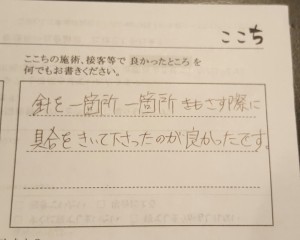 ここち
ここちの施術、接客等で 良かったところ を
何でもお書きください。
針を一箇所一箇所 さす際に
具合をきいて下さったのが良かったです。